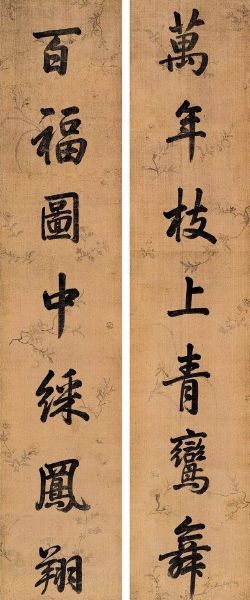 萬年枝上青鸞舞
百福圖中綵鳳翔